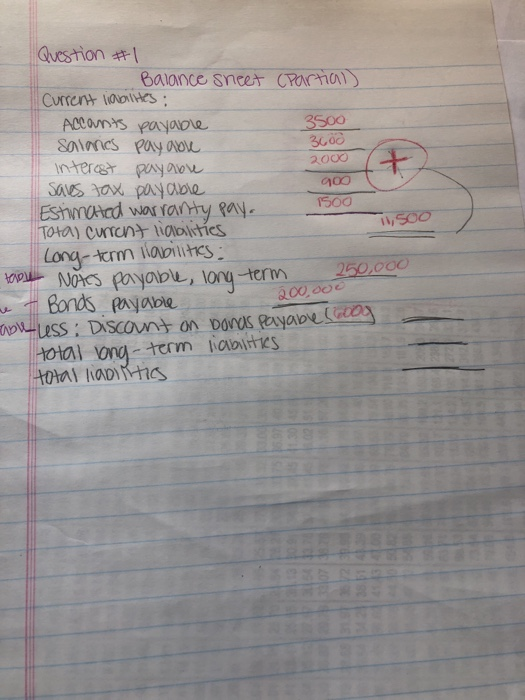 Question #1
Balance sheet (Partial)
Current liabilites:
Accounts payable 3500
Salaries payable 3600
interest payable 2000 +
Sales tax payable 900
Estimated warranty pay. 1500
Total current liabilities 11,500
Long-term liabilities:
Notes payable, long-term 250,000
- Bonds payable 200,000
Less: Discount on bonds payable (6000)
total long-term liabilities
total liabilities